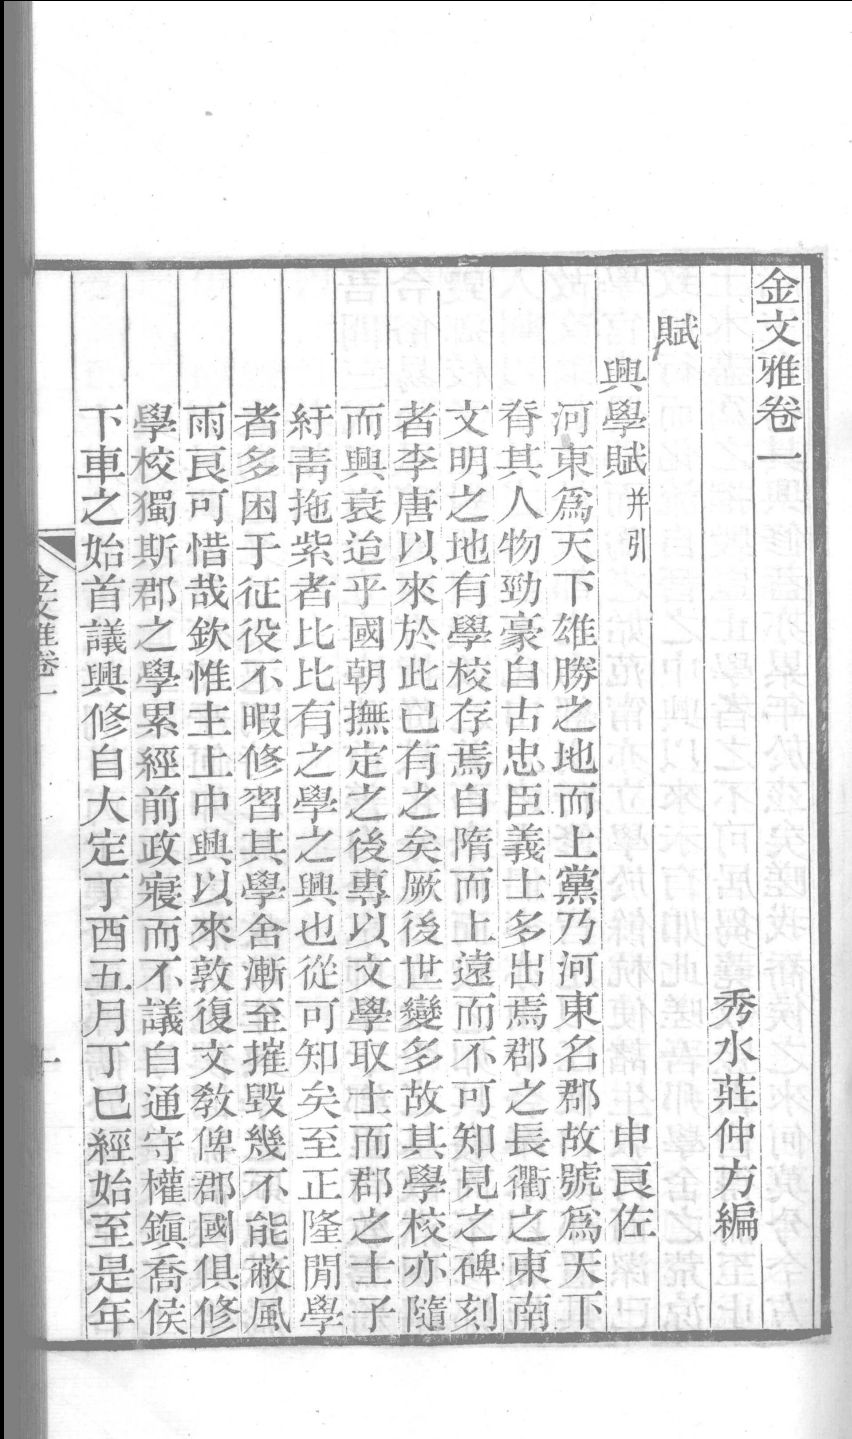 金文雅卷一
秀水莊仲方編
賦
興學賦并引 申良佐
河東爲天下雄勝之地而上黨乃河東名郡故號爲天下
脊其人物勁豪自古忠臣義士多出焉郡之長衢之東南
文明之地有學校存焉自隋而上遠而不可知見之碑刻
者李唐以來於此已有之矣厥後世變多故其學校亦隨
而興衰迨乎國朝撫定之後專以文學取士而郡之士子
紆靑拖紫者比比有之學之興也從可知矣至正隆閒學
者多困于征役不暇修習其學舍漸至摧毀幾不能蔽風
雨良可惜哉欽惟主上中興以來敦復文教俾郡國俱修
學校獨斯郡之學累經前政寢而不議自通守權鎭喬侯
下車之始首議興修自大定丁酉五月丁巳經始至是年
金文雅卷一
一